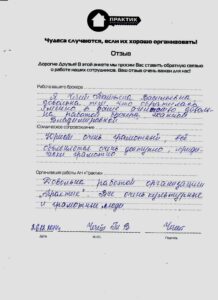 ПРАКТИК
Чудеса случаются, если их хорошо организовать!
Отзыв
Дорогие друзья! В этой анкете мы просим Вас оставить обратную связь
о работе наших сотрудников. Ваш отзыв очень важен для нас!
Работа вашего брокера
Я Татьяна Васильевна
довольна тем, что обратилась
именно в ваше агентство, довольна
работой брокера
Владимировной
Юридическое сопровождение
Юрист очень грамотный всё
объяснены очень доступно, юридически
грамотно
Организация работы АН «Практик»
Довольна работой организации
"Практик". Все очень культурные
и грамотные люди
Т В
Дата
Ф.И.О.
Подпись